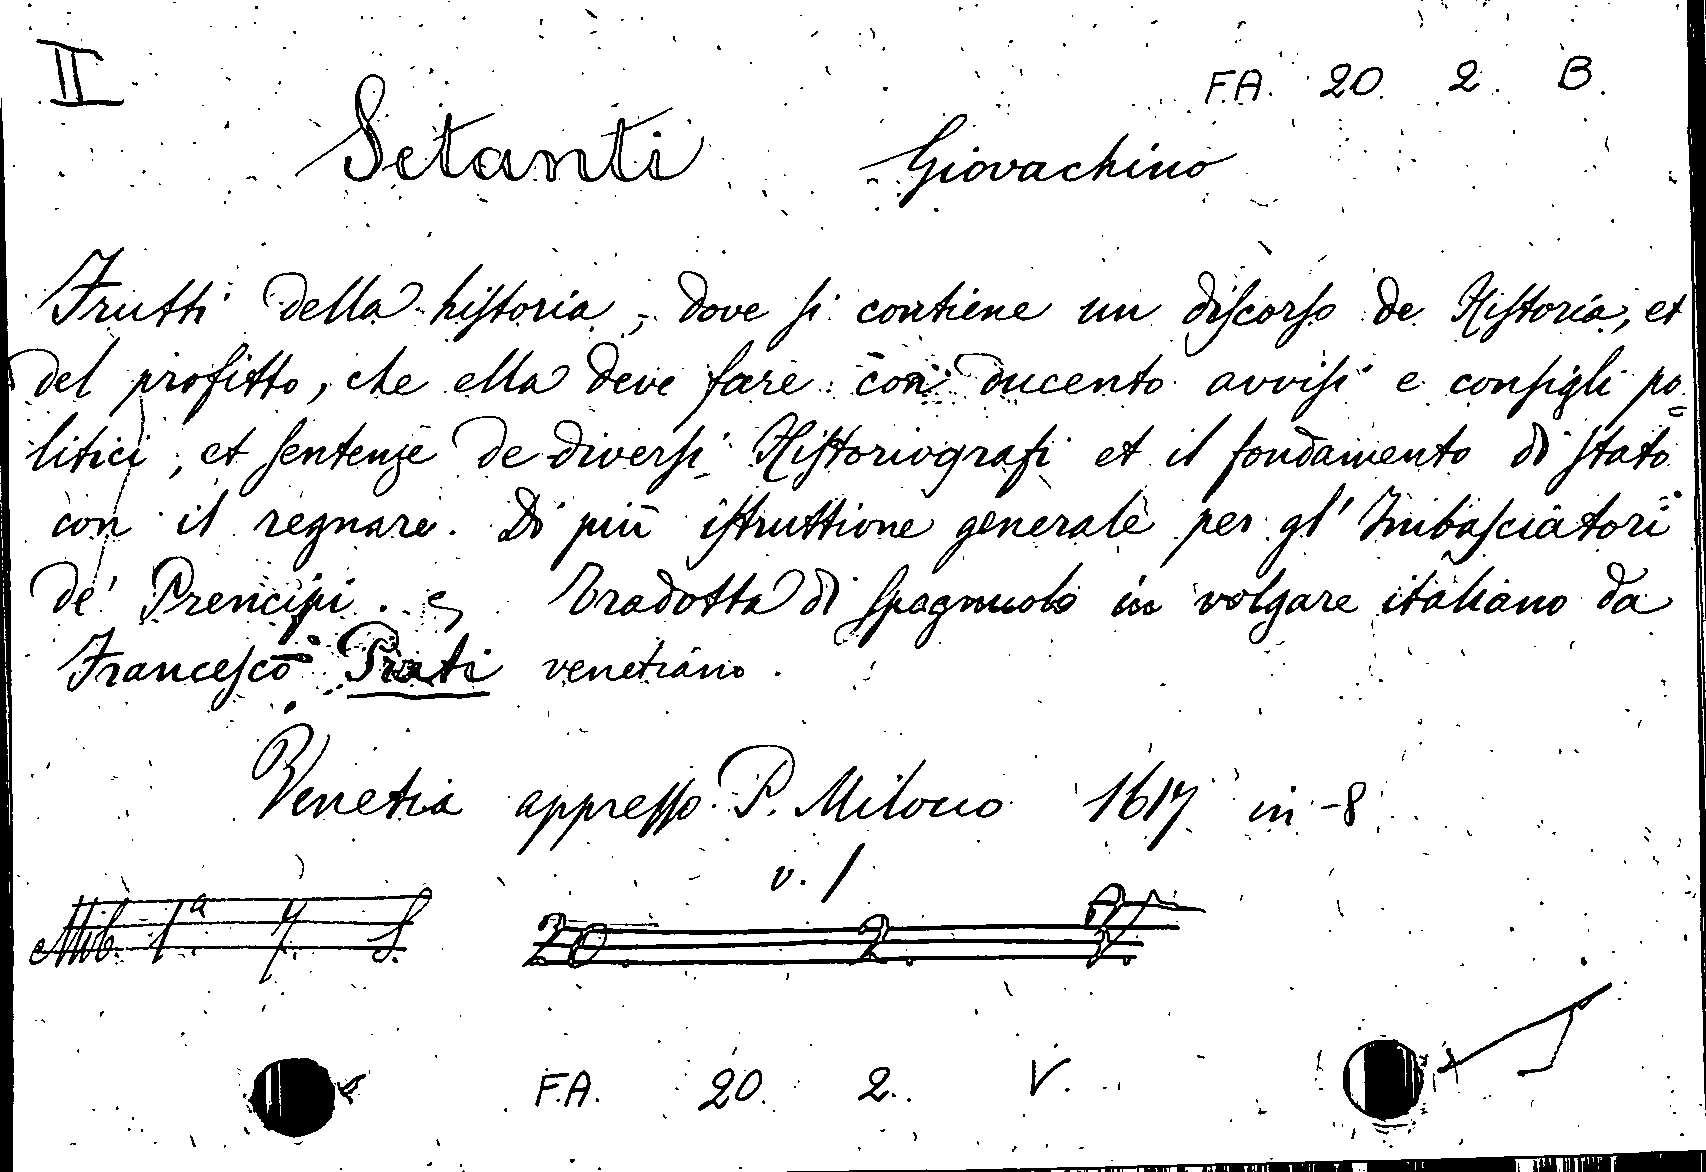 II
F.A. 20. 2. B.
Setanti Giovachino
Frutti della historia, dove si contiene un discorso de Historia, et
del profitto, che ella deve fare con ducento avvisi e consigli po=
litici, et sentenze de diversi Historiografi et il fondamento di stato
con il regnare. Di più istruttione generale per gl' Imbasciatori
de' Prencipi. e Tradotta di spagnuolo in volgare italiano da
Francesco Prati venetiano.
Venetia appresso P. Miloco 1617 in-8
v. 1
Mib. 1ª 7. S. 20. 2.
F.A. 20. 2. V.